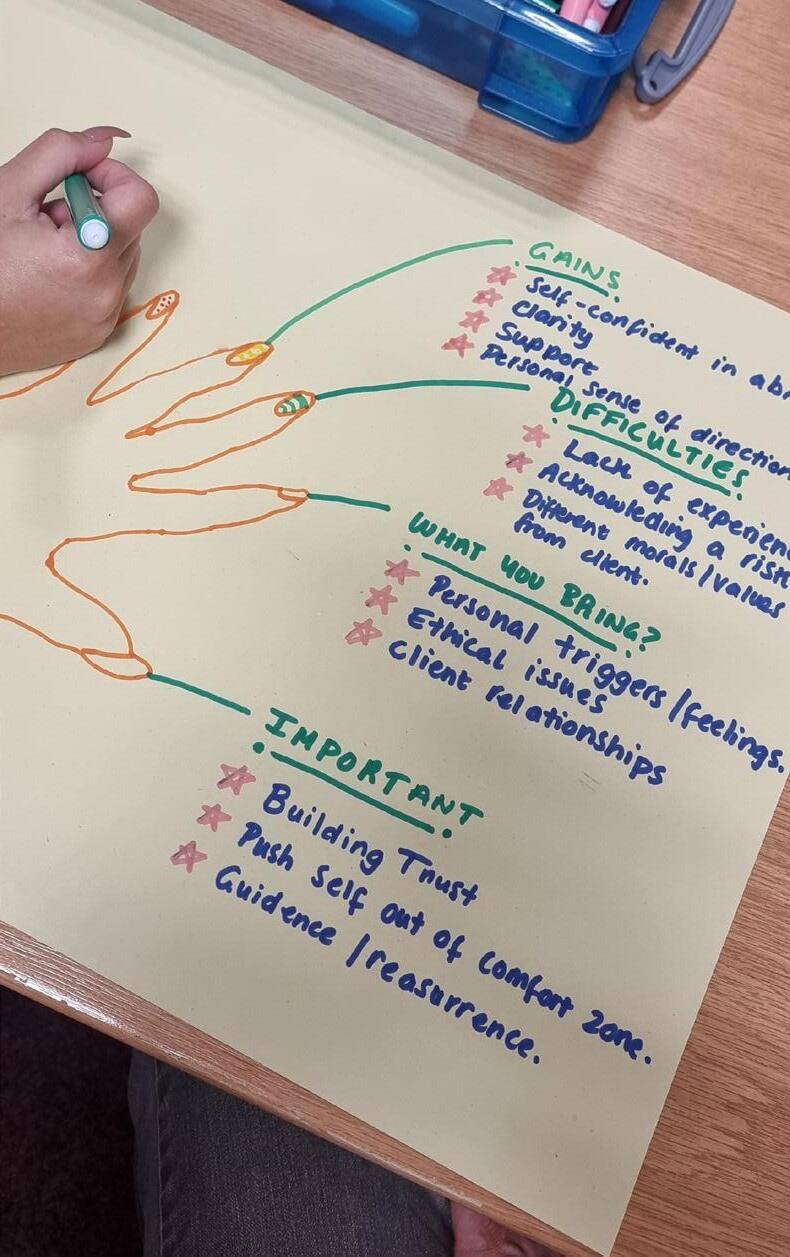 GAINS
Self-confident in
Clarity
Support
Personal sense of direction
DIFFICULTIES
Lack of
Acknowleding a risk
Different morals/values
from client.
WHAT YOU BRING?
Personal triggers/feelings.
Ethical issues
Client relationships
IMPORTANT
Building Trust
Push self out of comfort zone.
Guidence/reasurrence.